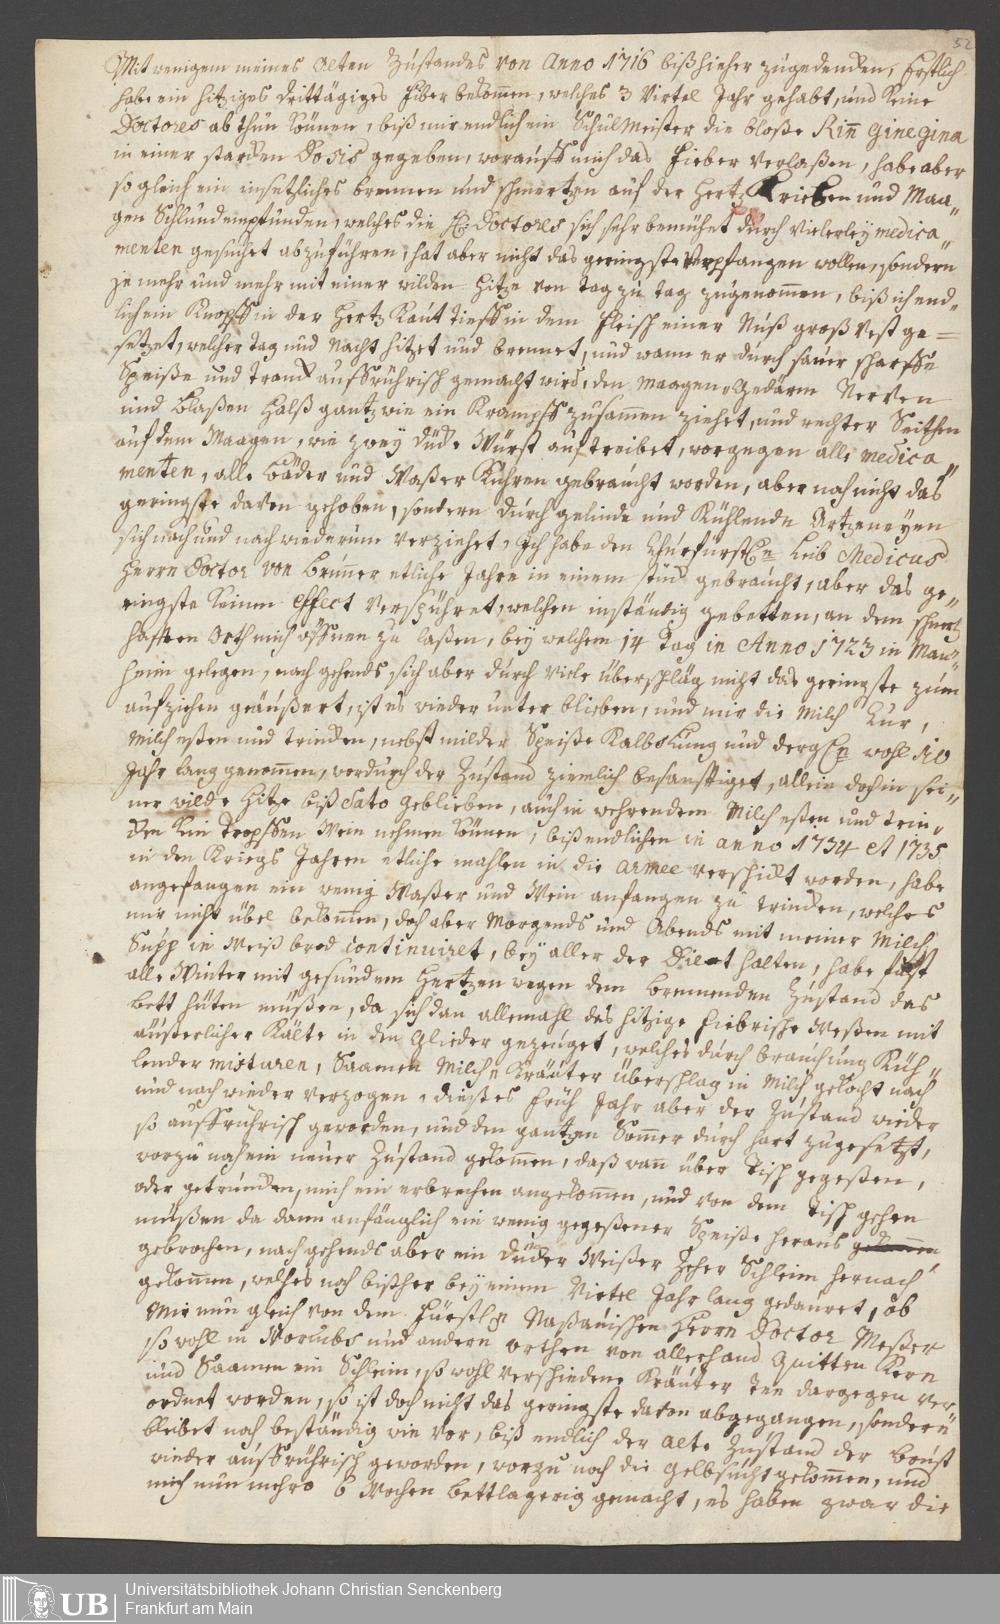 52
Mit wenigem meines alten Zustandes von Anno 1716 biß hieher zugedencken, Erstlich
habe ein hitziges drittägiges Fiber bekom̄en, welches 3 Virtel Jahr gehabt, und keine
Doctores abthun können, biß mir endlich ein Schulmeister die bloße Rin̄ Gine gina
in einer starcken Dosis gegeben, worauff mich das Fieber verlaßen, habe aber
so gleich ein insetliches brennen und schmertzen auf der Hertz Krieben und Maa„
gen Schlund empfunden, welches die H: Doctores sich sehr bemühet durch vielerley medica„
menten gesuchet abzuführen, hat aber nicht das geringste verpfangen wollen, sondern
je mehr und mehr mit einer wilden Hitze von Tag zu tag zugenom̄en, biß ich end„
lich ein Knopff in der Hertz Kaut tieff in dem Fleisch einer Nuß groß vest ge=
setzet, welcher tag und nacht hitzet und brennet, und wann er durch sauer scharffe
Speiße und Tranck auffrührisch gemacht wird, den Maagen, Gedärm Nerven
und Blaßen Halß gantz wie ein Krampff zusammen ziehet, und rechter Seithen
auf dem Maagen, wie zwey dücke Würst auftreibet, worgegen alle medica„
menten, alle Bäder und Waßer Kuhren gebraucht worden, aber noch nicht das
geringste davon gehoben, sondern durch gelinde und Kühlende Artzeneyen
sich nach und nach wiederum verziehet, Ich habe den Churfürstl:en Leib Medicus
Herrn Doctor von Brunner etliche Jahre in einem stück gebraucht, aber das ge„
ringste keinen effect verspühret, welchen inständig gebetten, an dem schmertz
hafften Orth mich öffnen zu laßen, bey welchem 14 Tag in Anno 1723 in Man„
heim gelegen, nach gehends sich aber durch viele überschläg nicht das geringste zum
aufziehen geäußert, ist es wieder unter blieben, und mir die Milch Cur,
Milch eßen und trincken, nebst milder Speiße Kalbs Lung und dergl:en wohl 10
Jahr lang genom̄en, wordurch der Zustand ziemlich besänfftiget, allein doch in sei„
ner wilde Hitze biß dato geblieben, auch in wehrendem Milch eßen und trin„
cken kein Tropffen Wein nehmen können, biß endlichen in anno 1734 et 1735
in den Kriegs Jahren etliche mahlen in die Armee verschickt worden, habe
angefangen ein wenig Waßer und Wein anfangen zu trincken, welches
mir nicht übel bekom̄en, doch aber Morgends und Abends mit meiner Milch
Supp in Weiß brod continuiret, bey aller der Diæt halten, habe fast
alle Winter mit gesundem Hertzen wegen dem brennenden Zustand das
bett hüten müßen, da sich dan allemahl das hitzige fiebrische Weßen mit
äußerlicher Kälte in den Glieder gezeuget, welches durch brauchung Küh„
lender mixturen, Saamen Milch u Kräuter überschlag in Milch gekocht nach
und nach wieder verzogen, dießes Früh Jahr aber der Zustand wieder
so auffrührisch geworden, und den gantzen Som̄er durch hart zugesetzt,
worzu noch ein neuer Zustand gekom̄en, daß wan̄ über Tisch gegeßen,
oder getruncken, mich ein erbrechen angekom̄en, und von dem Tisch gehen
müßen da dann anfänglich ein wenig gegeßener Speiße heraus
gebrochen, nach gehends aber ein dücker Weißer Zeher Schleim hernach
gekom̄en, welches noch bißher bey einem Virtel Jahr lang gedauret, ob
Mir nun gleich von dem Fürstl:en Naßauischen Herrn Doctor Meßer
so wohl in Worumbs und andern orthen von allerhand Quitten Kern
und Saamen ein Schleim, so wohl verschiedene Kräuter Tee dargegen ver„
ordnet worden, so ist doch nicht das geringste davon abgegangen, sondern
bleibet noch beständig wie vor, biß endlich der alte Zustand der Brust
wieder auffrührisch geworden, worzu noch die Gelbsucht gekom̄en, und
mich nun mehro 6 Wochen bettlagerig gemacht, es haben zwar die
Universitätsbibliothek Johann Christian Senckenberg
Frankfurt am Main
UB